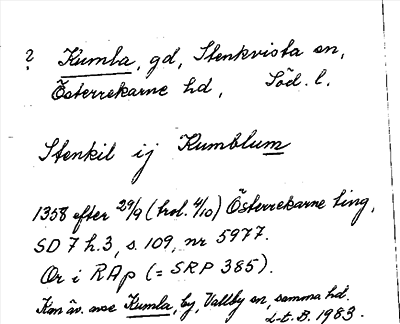 ? Kumla, gd, Stenkvista sn,
Österrekarne hd, Söd. l.
Stenkil ij Kumblum
1358 efter 29/9 (trol. 4/10) Österrekarne ting,
SD 7 h.3, s. 109, nr 5977.
Or i RAp (= SRP 385).
Kan äv. avse Kumla, by, Vallby sn, samma hd.
L-t. B. 1983